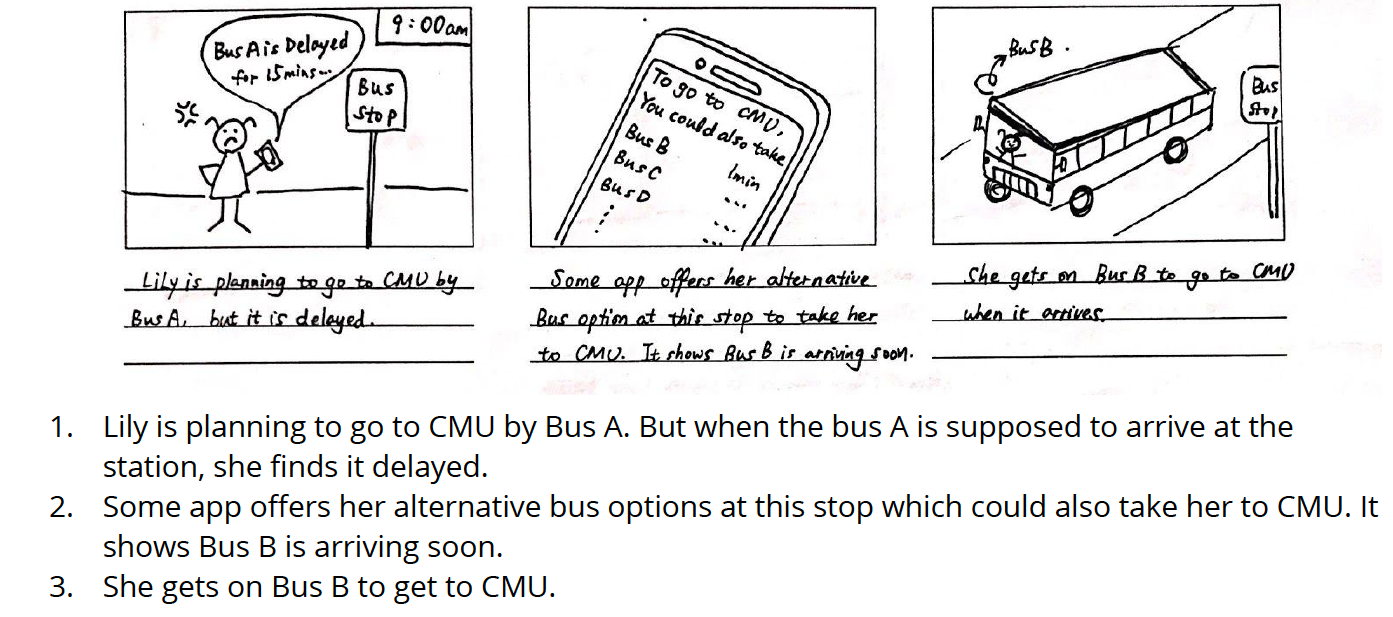 Bus A is Delayed
for 15 mins...
9:00am
Bus
Stop
To go to CMU,
You could also take
Bus B 1min
Bus C ...
Bus D ...
Bus B
Bus
Stop
Lily is planning to go to CMU by
Bus A, but it is delayed.
Some app offers her alternative
Bus option at this stop to take her
to CMU. It shows Bus B is arriving soon.
She gets on Bus B to go to CMU
when it arrives.
1. Lily is planning to go to CMU by Bus A. But when the bus A is supposed to arrive at the
station, she finds it delayed.
2. Some app offers her alternative bus options at this stop which could also take her to CMU. It
shows Bus B is arriving soon.
3. She gets on Bus B to get to CMU.